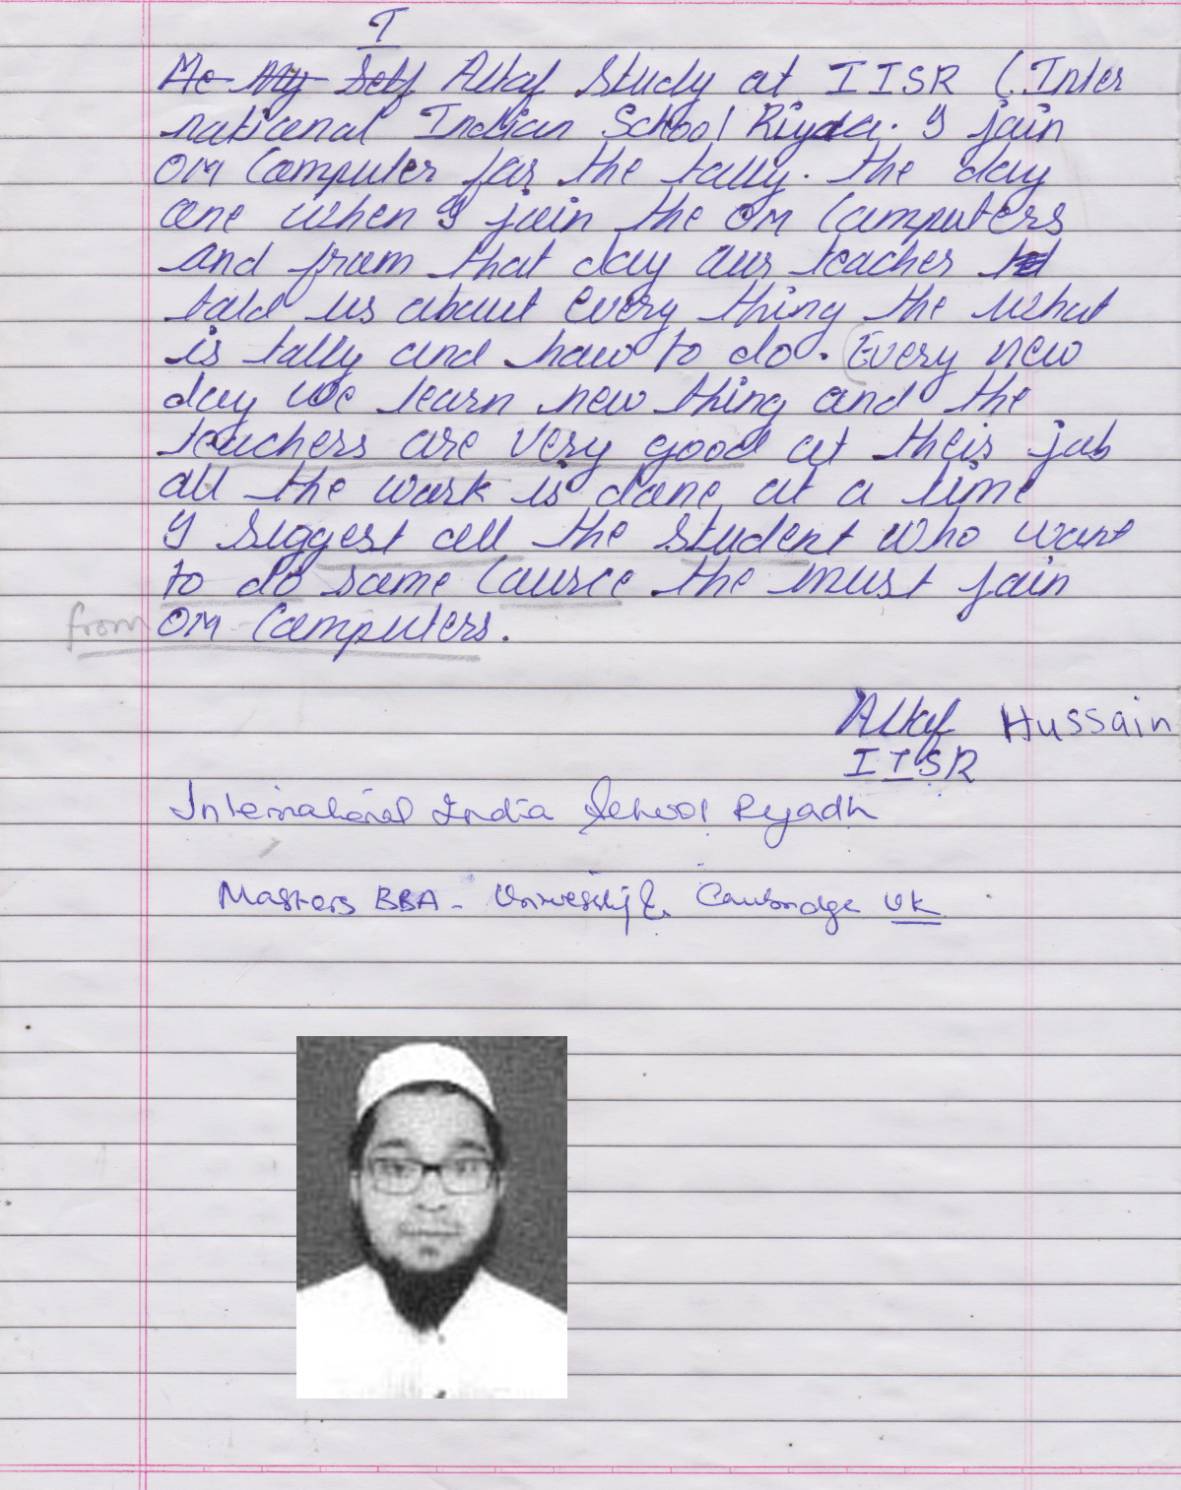 I
Me My Self Altaf Study at IISR (Inter
national Indian School Riyda. I join
OM Computer for the tally. the day
one when I join the OM Computers
and from that day our teacher td
told us about every thing the what
is tally and how to do. Every new
day we learn new thing and the
teachers are very good at their job
all the work is done at a time
I siggest all the student who want
to do some Cource the must join
from OM Computers.
Altaf Hussain
IISR
International India School Ryadh
Masters BBA - University Cambridge UK